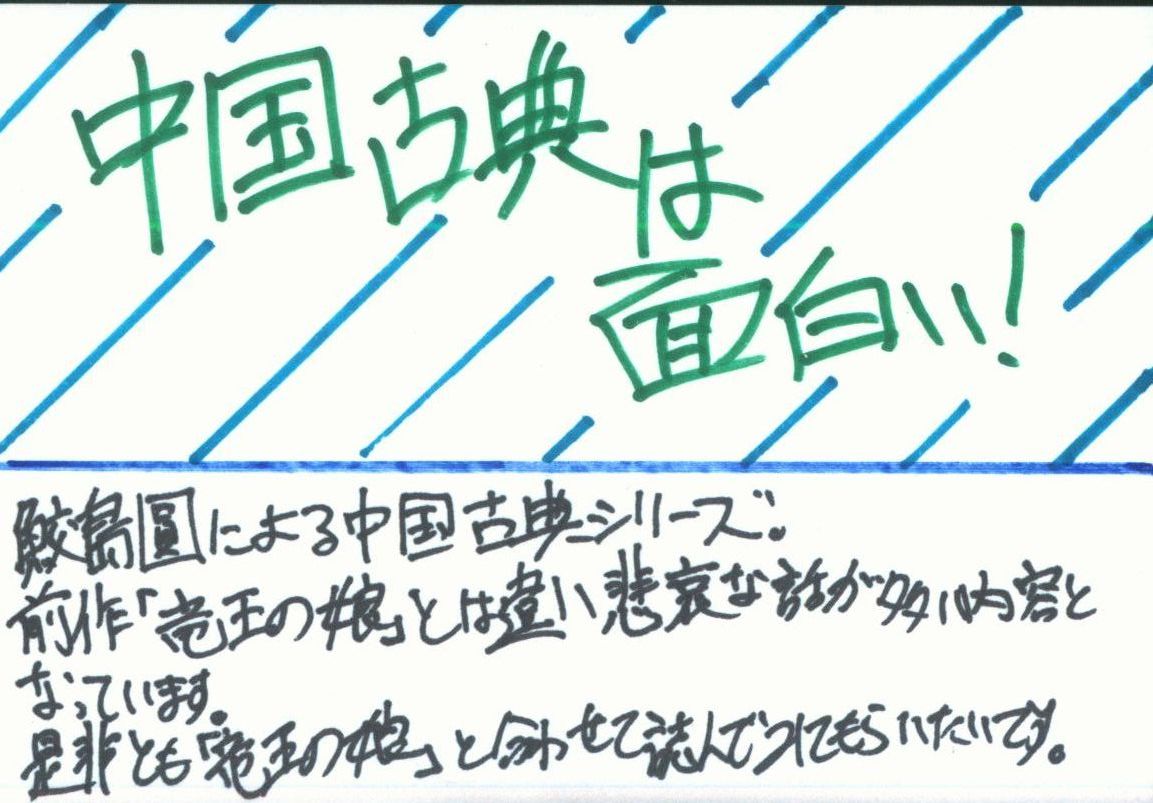 中国古典は
面白い!
鮫島圓による中国古典シリーズ。
前作「竜王の娘」とは違い悲哀な話が多い内容と
なっています。
是非とも「竜王の娘」と合わせて読んでもらいたいです。